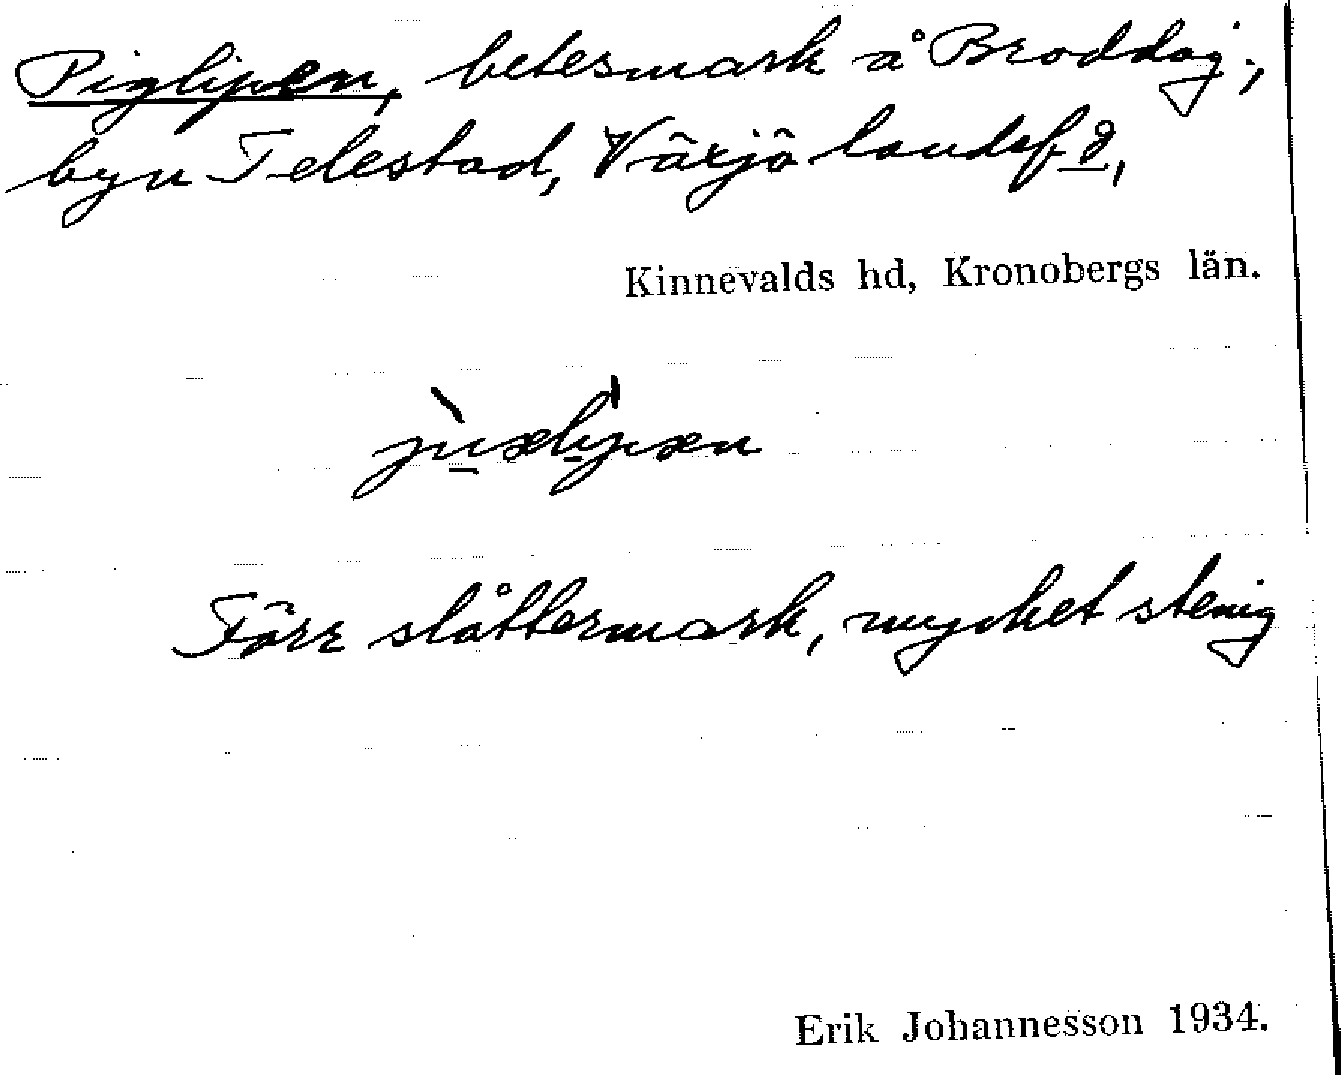 Piglipen, betesmark å Broddag.,
byn Telestad, Växjö landsf 8,
Kinnevalds hd, Kronobergs län.
Förr slåttermark, mycket stenig
Erik Johannesson 1934.